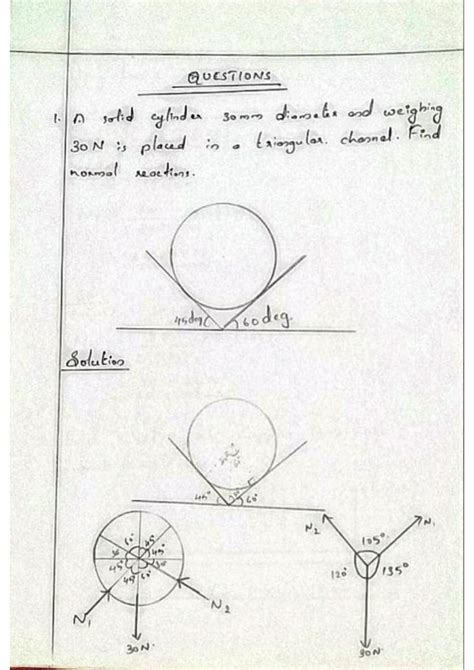 QUESTIONS
1. A solid cylinder 30mm diameter and weighing
30N is placed in a triangular channel. Find
normal reactions.
45deg 60 deg.
Solution
45° 60°
N2 105° N1
60° 45° 45°
45° 30
45 60°
120° 135°
N1 N2
30N 30N